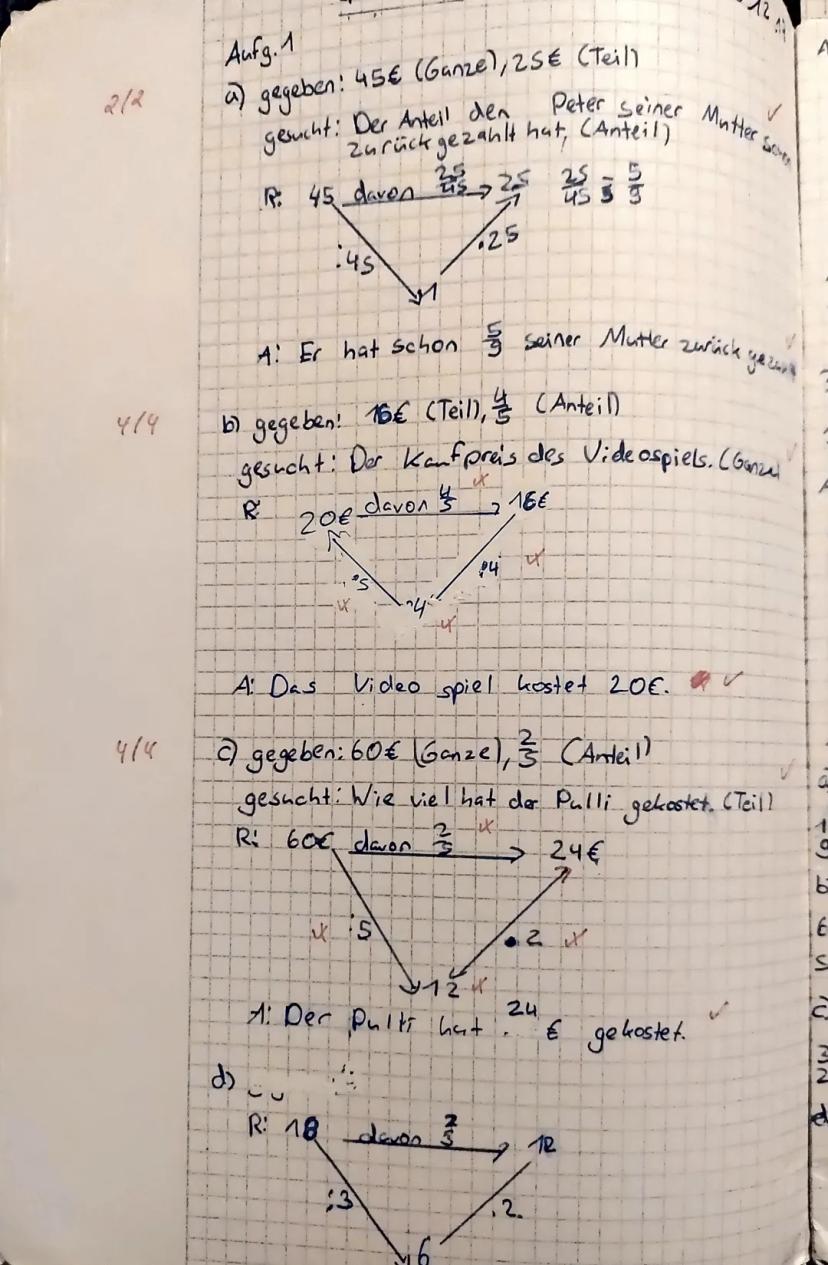 12.11
Aufg. 1
2/2
a) gegeben: 45€ (Ganze), 25€ (Teil)
gesucht: Der Anteil den Peter seiner Mutter schon
zurückgezahlt hat, (Anteil)
R: 45 davon 25/45 25 25/45 = 5/9
:45 ·25
1
A: Er hat schon 5/9 seiner Mutter zurück gezahlt
4/4
b) gegeben: 16€ (Teil), 4/5 (Anteil)
gesucht: Der Kaufpreis des Videospiels. (Ganze)
R: 20€ davon 4/5 16€
·5 :4
4
A: Das Videospiel kostet 20€.
4/4
c) gegeben: 60€ (Ganze), 2/5 (Anteil)
gesucht: Wie viel hat der Pulli gekostet. (Teil)
R: 60€ davon 2/5 24€
:5 ·2
12
A: Der Pulli hat 24 € gekostet.
d)
R: 18 davon 2/3 12
:3 ·2
6